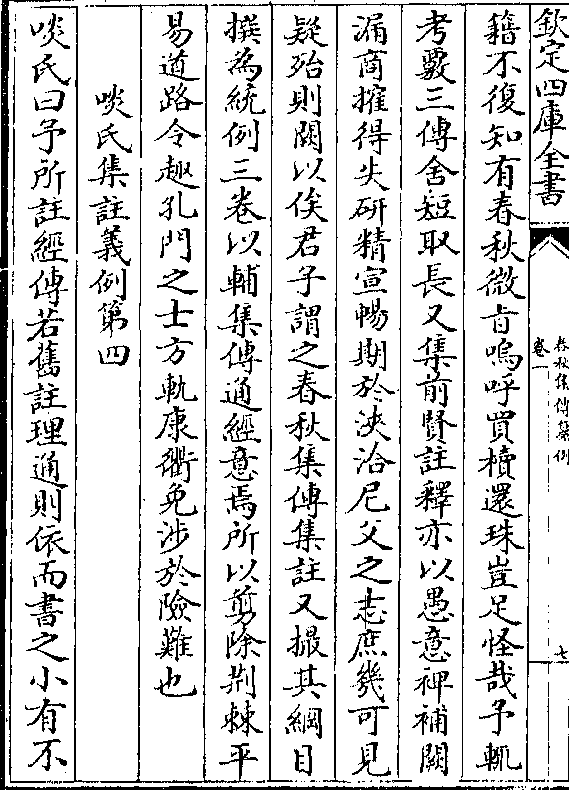 欽定四庫全書
春秋集傳纂例
卷一
七
籍不復知有春秋微旨嗚呼買櫝還珠豈足怪哉予輒
考覈三傳舍短取長又集前賢註釋亦以愚意裨補闕
漏商搉得失研精宣暢期於浹洽尼父之志庶幾可見
疑殆則闕以俟君子謂之春秋集傳集註又撮其綱目
撰為統例三卷以輔集傳通經意焉所以剪除荆棘平
易道路令趣孔門之士方軌康衢免涉於險難也
啖氏集註義例第四
啖氏曰予所註經傳若舊註理通則依而書之小有不